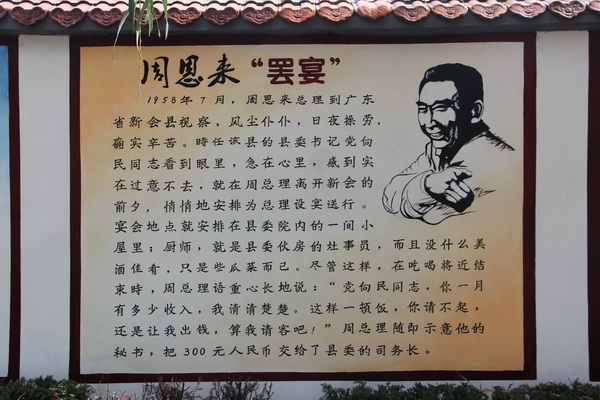 周恩来“罢宴”
1958年7月，周恩来总理到广东
省新会县视察，风尘仆仆，日夜操劳，
确实辛苦。時任该县的县委书记党向
民同志看到眼里，急在心里，感到实
在过意不去，就在周总理离开新会的
前夕，悄悄地安排为总理设宴送行。
宴会地点就安排在县委院内的一间小
屋里；厨师，就是县委伙房的灶事员，而且没什么美
酒佳肴，只是些瓜菜而已。尽管这样，在吃喝将近结
束時，周总理语重心长地说：“党向民同志，你一月
有多少收入，我清清楚楚。这样一顿饭，你请不起，
还是让我出钱，算我请客吧！”周总理随即示意他的
秘书，把300元人民币交给了县委的司务长。